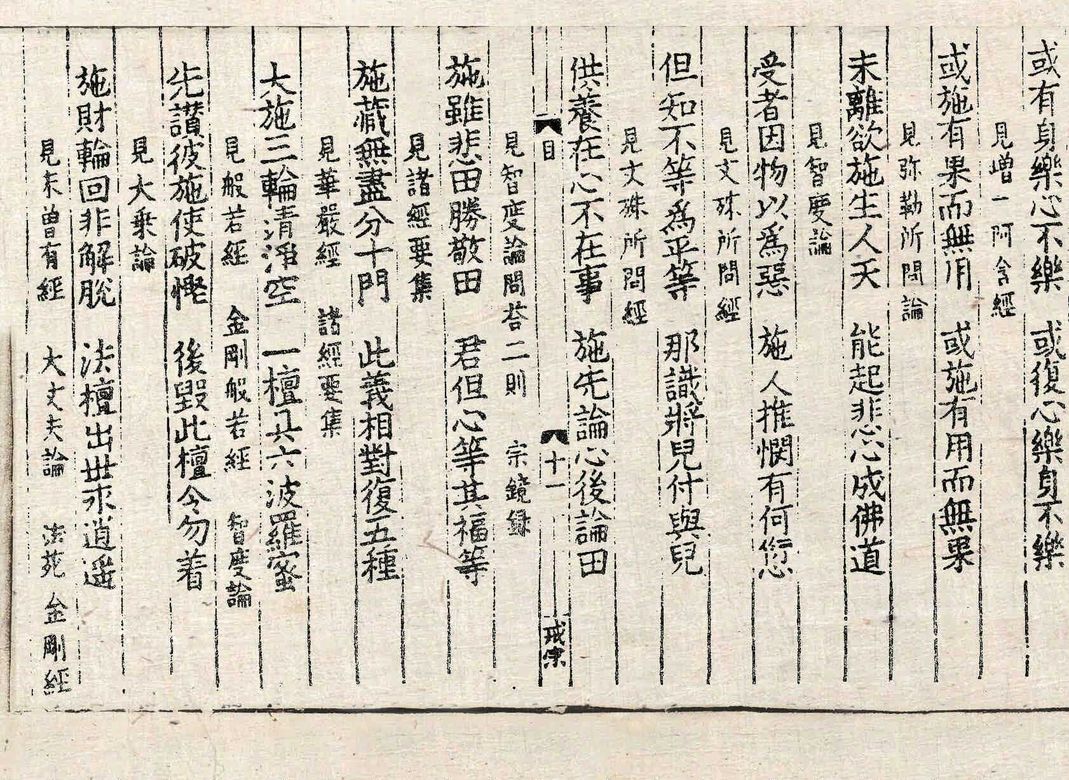 或有身樂心不樂　或復心樂身不樂
見增一阿含經
或施有果而無用　或施有用而無果
見弥勒所問論
未離欲施生人天　能起悲心成佛道
見智度論
受者因物以為惡　施人推憫有何愆
見文殊所問經
但知不等為平等　那識將兒付與兒
見文殊所問經
供養在心不在事　施先論心後論田
目　十一　戒宗
見智度論問荅二則　宗鏡録
施雖悲田勝敬田　君但心等其福等
見諸經要集
施藏無盡分十門　此義相對復五種
見華嚴經　諸經要集
大施三輪清淨空　一檀具六波羅蜜
見般若經　金剛般若經　智度論
先讃彼施使破慳　後毀此檀令勿着
見大乗論
施財輪回非解脫　法檀出世求逍遥
見未曾有經　大丈夫論　法苑　金剛經